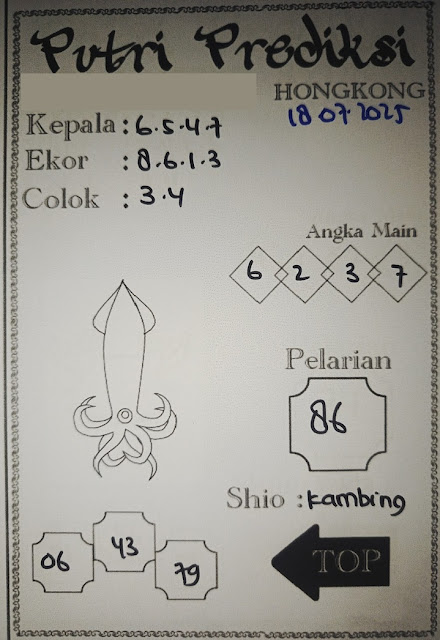 Putri Prediksi
HONGKONG
18 07 2025
Kepala : 6.5.4.7
Ekor : 8.6.1.3
Colok : 3.4
Angka Main
6 2 3 7
Pelarian
86
Shio : Kambing
06 43 79
TOP